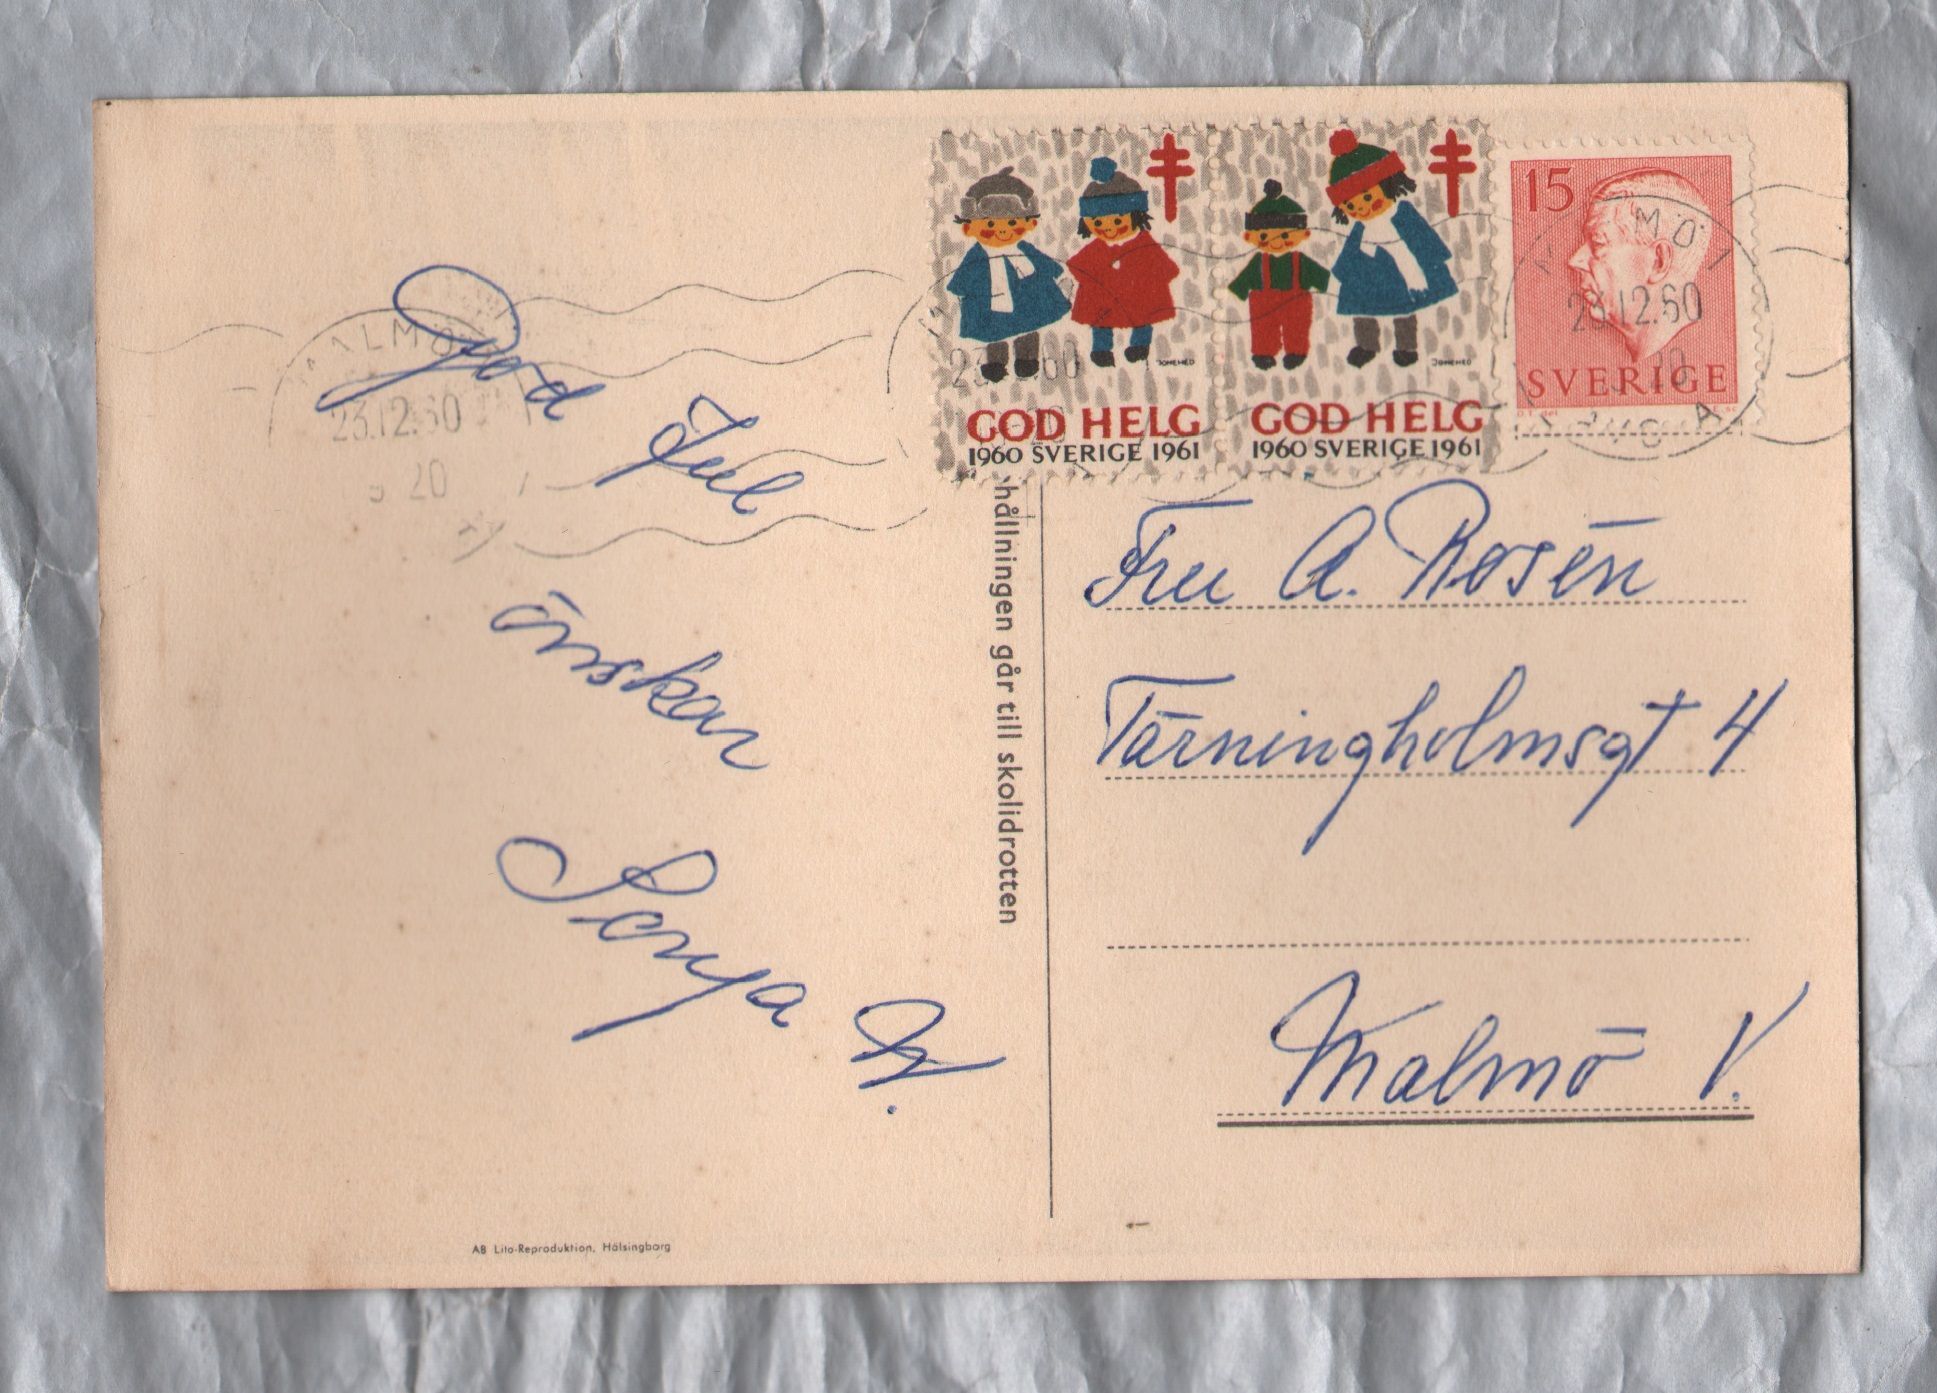 God Jul
önskar
Sonya W.
MALMÖ 1
23.12.60
20
GOD HELG
1960 SVERIGE 1961
JOMEMED
GOD HELG
1960 SVERIGE 1961
JOMEMED
15
SVERIGE
MALMÖ 1
23.12.60
hållningen går till skolidrotten
Fru A. Rosén
Tärningholmsgt 4
Malmö V.
AB Lito-Reproduktion, Hälsingborg